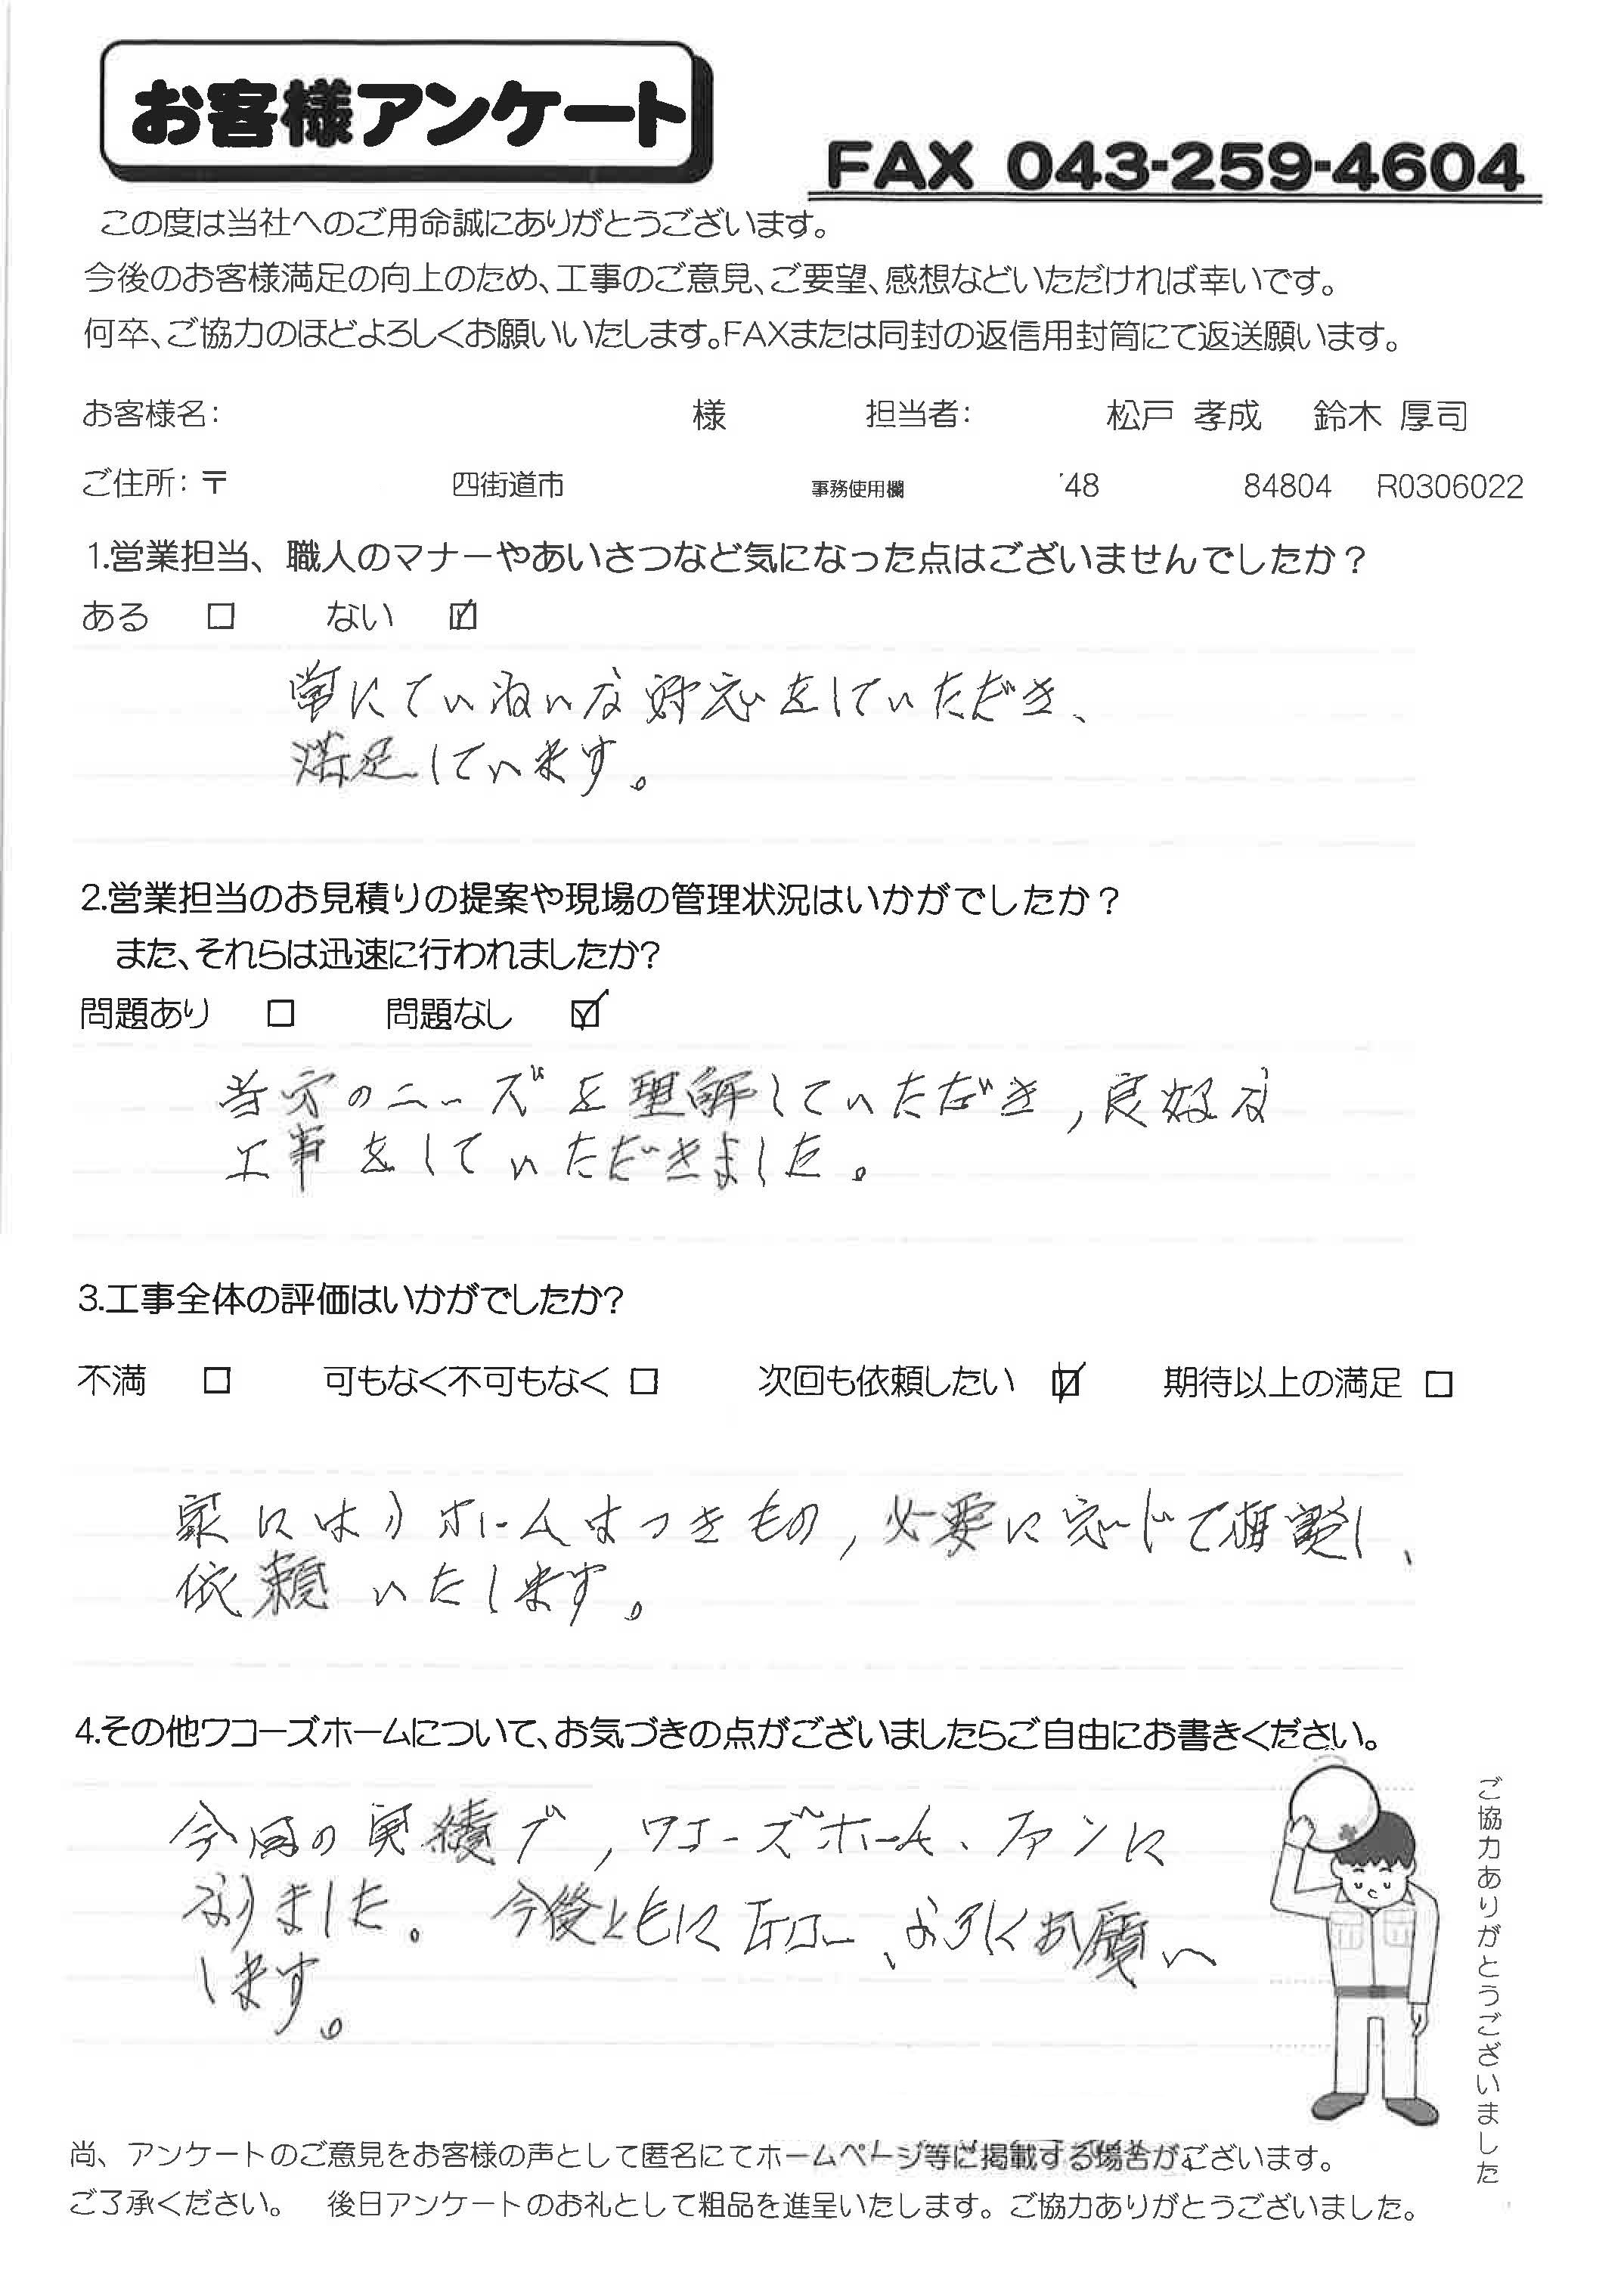 お客様アンケート
FAX 043-259-4604
この度は当社へのご用命誠にありがとうございます。
今後のお客様満足の向上のため、工事のご意見、ご要望、感想などいただければ幸いです。
何卒、ご協力のほどよろしくお願いいたします。FAXまたは同封の返信用封筒にて返送願います。
お客様名: 様 担当者: 松戸 孝成 鈴木 厚司
ご住所: 〒 四街道市 事務使用欄 48 84804 R0306022
1.営業担当、職人のマナーやあいさつなど気になった点はございませんでしたか？
ある □ ない ☑
常にていねいな対応をしていただき、
満足しています。
2.営業担当のお見積りの提案や現場の管理状況はいかがでしたか？
また、それらは迅速に行われましたか?
問題あり □ 問題なし ☑
当方のニーズを理解していただき,良好な
工事をしていただきました。
3.工事全体の評価はいかがでしたか?
不満 □ 可もなく不可もなく □ 次回も依頼したい ☑ 期待以上の満足 □
家にはリホームはつきもの,必要に応じて相談し、
依頼いたします。
4.その他ワコーズホームについて、お気づきの点がございましたらご自由にお書きください。
今回の実績で,ワコーズホーム、ファンに
なりました。今後ともに 、よろしくお願い
します。
ご協力ありがとうございました
尚、アンケートのご意見をお客様の声として匿名にてホームページ等に掲載する場合がございます。
ご了承ください。 後日アンケートのお礼として粗品を進呈いたします。ご協力ありがとうございました。